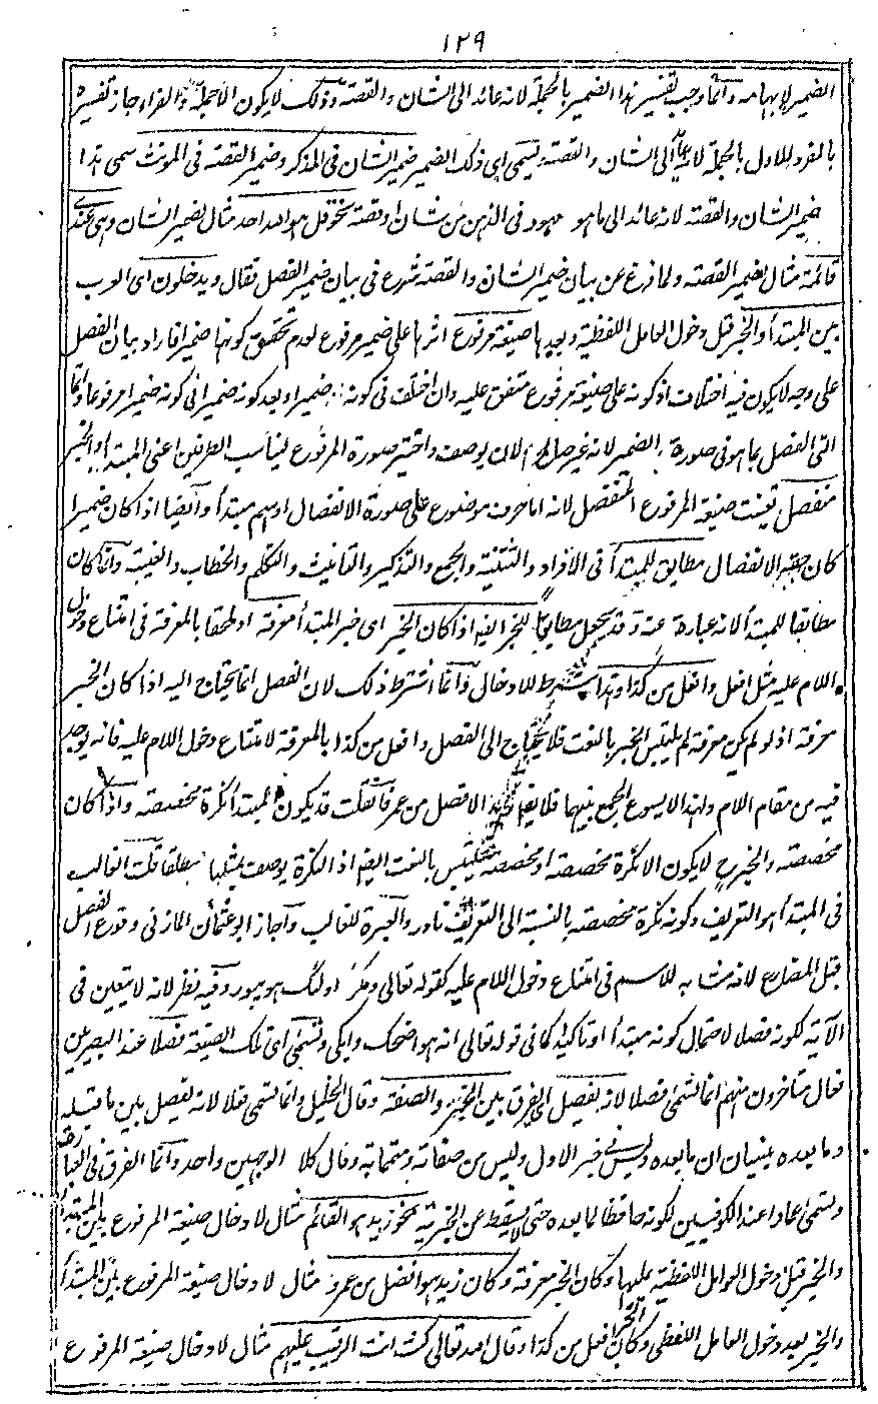 ١٢٩
الضمير لابهامه وانما وجب تفسير هذا الضمير بالجملة لانه عائد الى الشان والقصة وذلك لا يكون الا جملة والفراء جاز تفسيره
بالمفرد المأول بالجملة لانه عائد الى الشان والقصة ويسمى اى ذلك الضمير ضمير الشان فى المذكر وضمير القصة فى المونث سمى هذا
ضمير الشان والقصة لانه عائد الى ما هو معهود فى الذهن من شان او قصة نحو قل هو الله احد مثال لضمير الشان وهى هند
قائمة مثال لضمير القصة ولما فرغ عن بيان ضمير الشان والقصة شرع فى بيان ضمير الفصل فقال ويدخلون اى العرب
بين المبتدأ والخبر قبل دخول العامل اللفظية وبعدها صيغة مرفوع اثرها على ضمير مرفوع لعدم تحقق كونها ضميرا فاراد بيان الفصل
على وجه لا يكون فيه اختلاف اذ كونه على صيغة مرفوع متفق عليه وان اختلف فى كونه ضميرا وبعد كونه ضميرا فى كونه ضميرا مرفوعا وانما
اتى الفصل بما هو فى صورة الضمير لانه غير صالح لان يوصف واختير صورة المرفوع ليناسب الطرفين اعنى المبتدأ والخبر
منفصل تعينت صيغة المرفوع المنفصل لانه اما حرف موضوع على صورة الانفصال او اسم مبتدأ وايضا اذا كان ضميرا
كان حقه الانفصال مطابق للمبتدأ فى الافراد والتثنية والجمع والتذكير والتانيث والتكلم والخطاب والغيبة وانما كان
مطابقا للمبتدأ لانه عبارة عنه وقد يجعل مطابقا للخبر ايضا اذا كان الخبر اى خبر المبتدأ معرفة او ملحقا بالمعرفة فى امتناع دخول
اللام عليه مثل افعل وافعل من كذا وهذا شرط للادخال وانما اشترط ذلك لان الفصل انما يحتاج اليه اذا كان الخبر
معرفة اذ لو لم يكن معرفة لم يلتبس الخبر بالنعت فلا يحتاج الى الفصل وافعل من كذا بالمعرفة لامتناع دخول اللام عليه فانه يوجد
فيه من مقام اللام ولهذا لا يسوغ الجمع بينهما فلا يقال زيد الافضل من عمرو فان قلت قد يكون المبتدأ نكرة مخصصة واذا كان
مخصصة والخبر ح لا يكون الا نكرة مخصصة او مخصصة يلتبس بالنعت ايضا اذ النكرة يوصف بمثلها مطلقا قلت الغالب
فى المبتدأ هو التعريف وكونه نكرة مخصصة بالنسبة الى التعريف نادر والعبرة للغالب واجاز ابو عثمان المازنى وقوع الفصل
قبل المضارع لانه مشابه للاسم فى امتناع دخول اللام عليه كقوله تعالى ومكر اولئك هو يبور وفيه نظر لانه لا يتعين فى
الآية لكونه فصلا لاحتمال كونه مبتدأ او تاكيدا كما فى قوله تعالى انه هو اضحك وابكى وتسمى اى تلك الصيغة فصلا عند البصريين
فقال متاخرون منهم انما تسمى فصلا لانه يفصل اى يفرق بين الخبر والصفة وقال الخليل وانما تسمى فصلا لانه يفصل بين ما قبله
وما بعده ببيان ان ما بعده وليس خبر الاول وليس من صفاته ومتمماته وقال كلا الوجهين واحد وانما الفرق فى العبارة
وتسمى عمادا عند الكوفيين لكونه حافظا لما بعده حتى لا يسقط عن الخبرية نحو زيد هو القائم مثال لادخال صيغة المرفوع بين المبتدأ
والخبر قبل دخول العوامل اللفظية عليها وكان الخبر معرفة وكان زيد هو افضل من عمرو مثال لادخال صيغة المرفوع بين المبتدأ
والخبر بعد دخول العامل اللفظى وكان الخبر افعل من كذا وقال الله تعالى كنت انت الرقيب عليهم مثال لادخال صيغة المرفوع